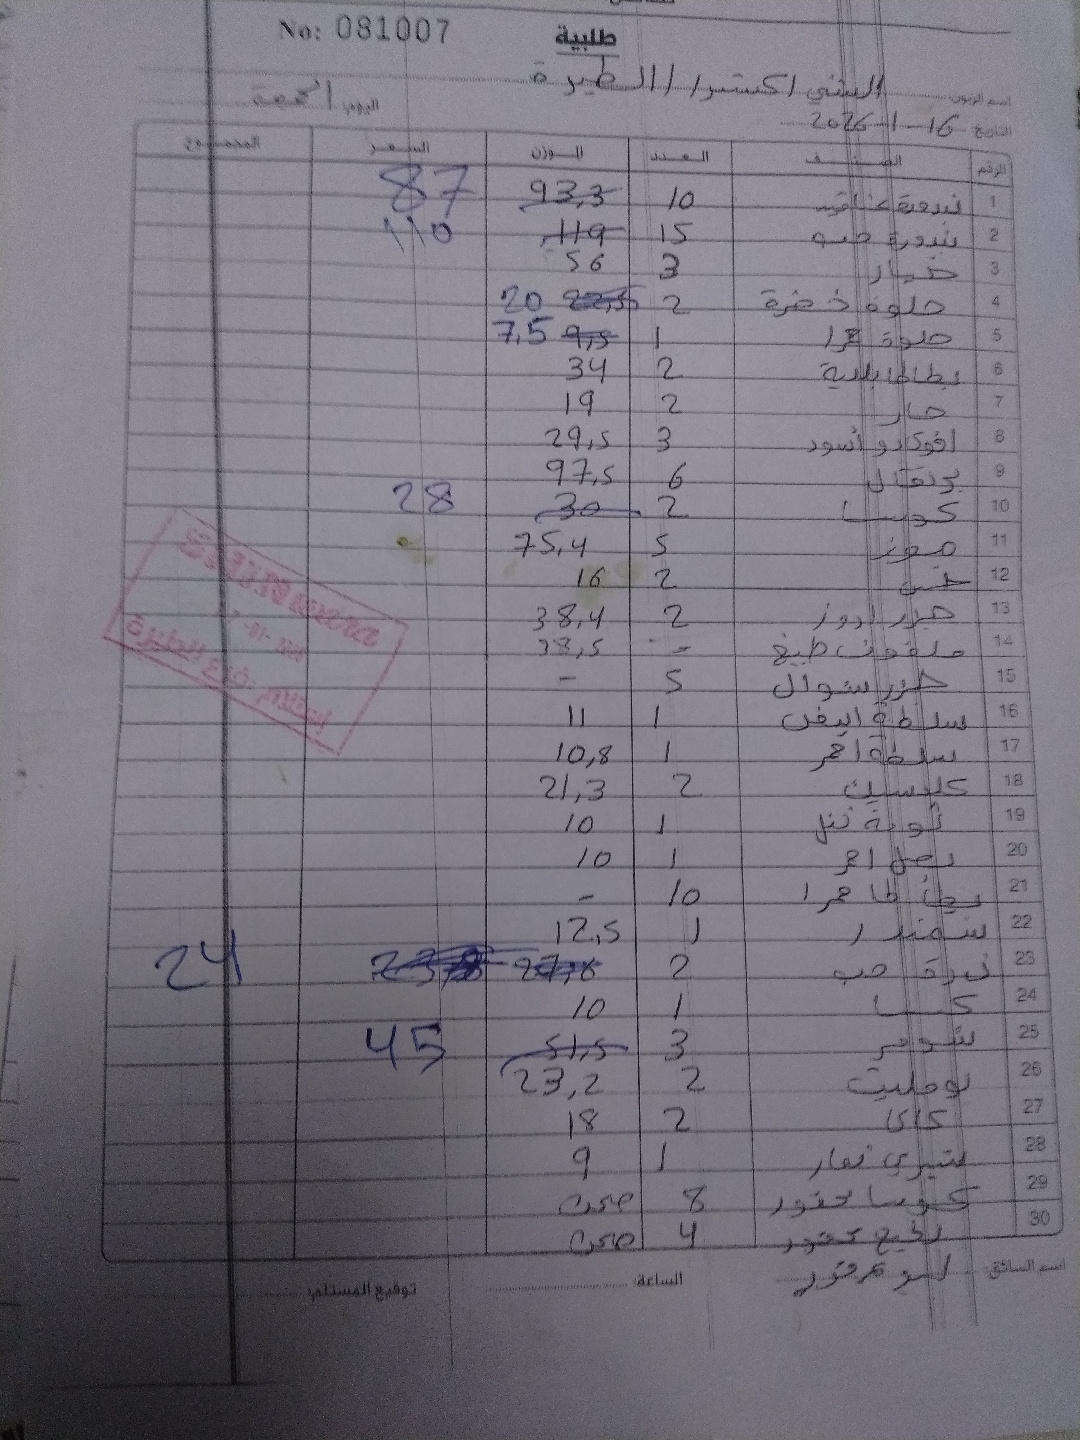 No: 081007
طلبية
اسم الزبون: البثني اكسترا / الطيرة
اليوم: الجمعة
التاريخ: 16-1-2026
الرقم الصنف العدد الوزن السعر المجموع
1 بندورة عناقيد 10 93,3 87
2 بندورة حب 15 119 110
3 خيار 3 56
4 حلوة خضرة 2 22,5 20
5 حلوة حمرا 1 9,5 7,5
6 بطاطا بلدية 2 34
7 حار 2 19
8 افوكادو اسود 3 29,5
9 برتقال 6 97,5
10 كوسا 2 30 28
11 موز 5 75,4
12 خس 2 16
13 2 38,4
14 ملفوف طبيخ - 38,5
15 جزر شوال 5 -
16 سلطة ابيض 1 11
17 سلطة احمر 1 10,8
18 2 21,3
19 1 10
20 بصل احمر 1 10
21 بطاطا حمرا 10 -
22 شمندر 1 12,5
23 حب 2 27,8 23,8 24
24 1 10
25 شومر 3 51,5 45
26 بومليت 2 23,2
27 كاكا 2 18
28 شيري تمار 1 9
29 كوسا حفور 8 صحن
30 حفور 4 صحن
اسم السائق:
الساعة:
توقيع المستلم: